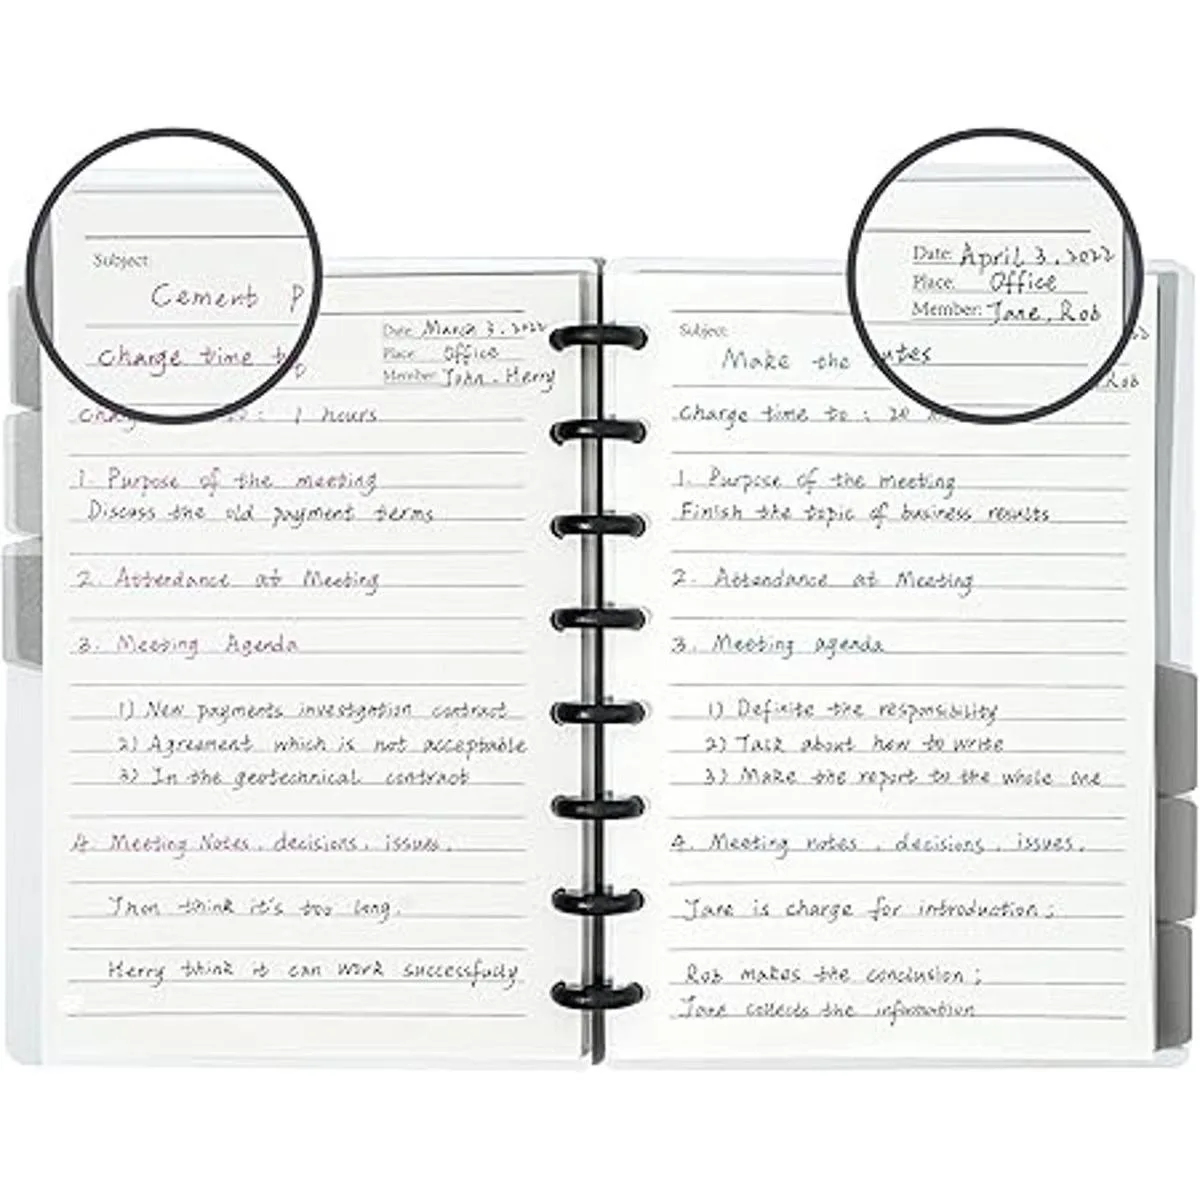 Subject:
Cement P
Charge time t
Date: March 3. 2022
Place: Office
Member: John. Herry
1 hours
1. Purpose of the meeting
Discuss the old payment terms
2. Attendance at Meeting
3. Meeting Agenda
1) New payments investgation contract
2) Agreement which is not acceptable
3) In the geotechnical contract
4. Meeting Notes. decisions. issues.
Jhon think it's too long.
Herry think it can work successfully
Date: April 3. 2022
Place: Office
Member: Jane, Rob
Subject:
Make the utes
Rob
Charge time to : 20
1. Purpose of the meeting
Finish the topic of business results
2. Attendance at Meeting
3. Meeting agenda
1) Definite the responsibility
2) Talk about how to write
3) Make the report to the whole one
4. Meeting notes. decisions. issues.
Jane is charge for introduction;
Rob makes the conclusion;
Jane collects the information